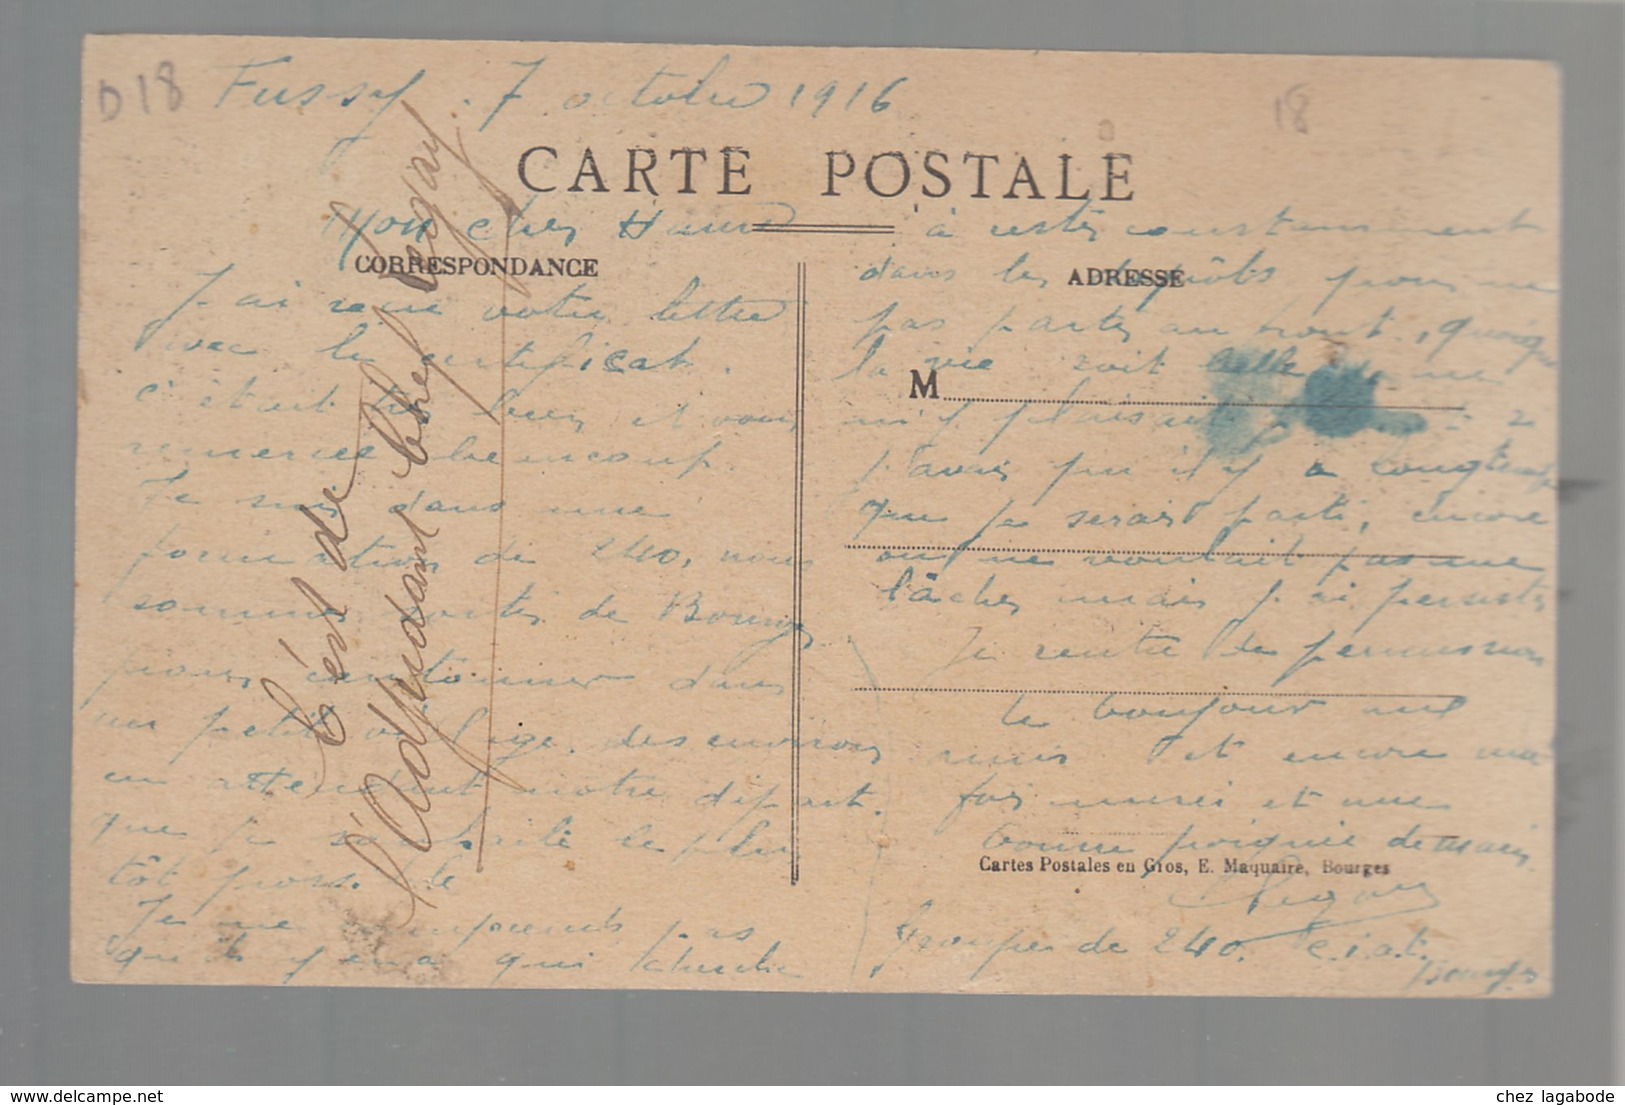 D18 Fussy. 7 octobre 1916
18
CARTE POSTALE
Mon cher
CORRESPONDANCE
J'ai reçu votre lettre
avec le certificat.
c'était très bien et vous
remercie beaucoup.
Je suis dans une
formation de 240, nous
sommes sortis de Bourges
pour cantonner dans
un petit village des environs
en attendant notre départ.
que je souhaite le plus
tôt possible
Je ne comprends pas
qu'il y en a qui cherche
ADRESSE
à rester constamment
dans les dépôts pour ne
pas partir au front, quoique
la vie soit belle
M
m'y plaisait
j'avais pu il y a longtemps
que je serais parti, encore
on ne voulait pas me
lâcher mais j'ai persisté
Je rentre de permission
le bonjour aux
amis et encore une
fois merci et une
bonne poignée de main
Cartes Postales en Gros, E. Maquaire, Bourges
Groupe de 240. C.I.A.C.
Bourges
C'est de
l'Adjudant Chef
chez lagabode